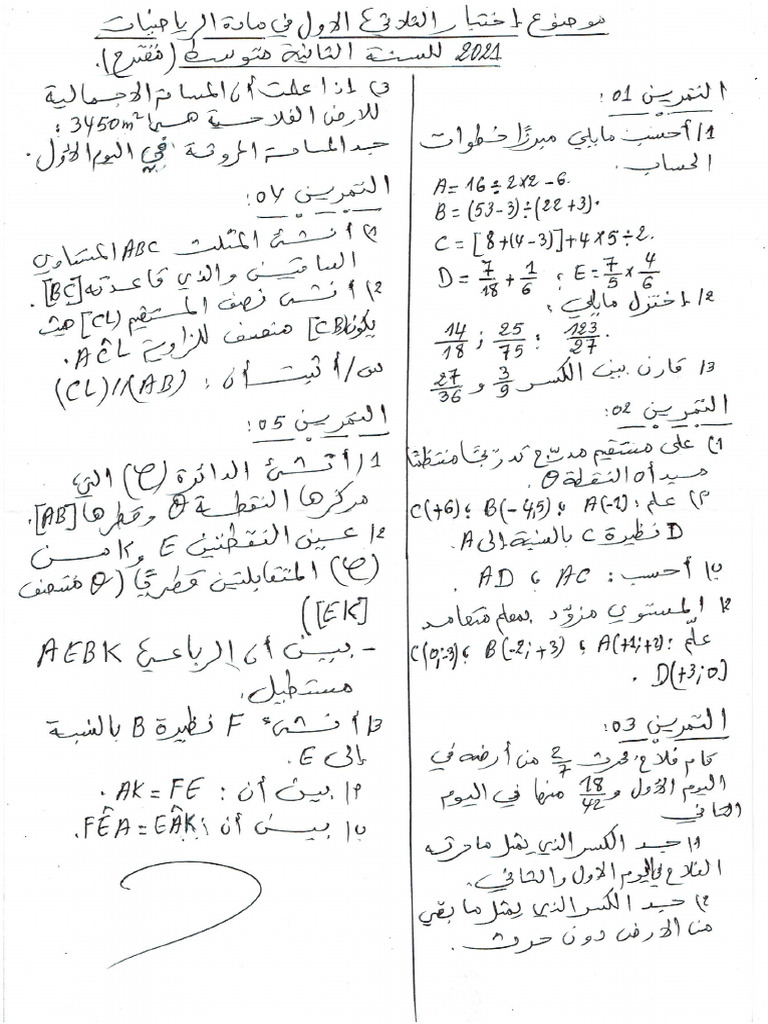 موضوع اختبار الثلاثي الاول في مادة الرياضيات
2021 للسنة الثانية متوسط (مقترح).
التمرين 01:
1/ أحسب مايلي مبرزا خطوات
الحساب.
A = 16 ÷ 2 × 2 - 6.
B = (53 - 3) ÷ (22 + 3).
C = [8 + (4 - 3)] + 4 × 5 ÷ 2.
D = 7/18 + 1/6 ؛ E = 7/5 × 4/6
2/ اختزل مايلي:
14/18 ; 25/75 ; 123/27.
3/ قارن بين الكسر 3/9 و 27/36
التمرين 02:
1) على مستقيم مدرج تدريجا منتظما
مبدأه النقطة O.
أ) علم: A(-2) ؛ B(-4,5) ؛ C(+6)
D نظيرة C بالنسبة إلى A.
ب/ أحسب: AC ؛ AD.
2/ المستوي مزود بمعلم متعامد
علّم: A(+1;+2) ؛ B(-2;+3) ؛ C(0;-3)
D(+3;0).
التمرين 03:
قام فلاح بحرث 2/7 من أرضه في
اليوم الأول و 18/42 منها في اليوم
الثاني
1) جد الكسر الذي يمثل ما حرثه
الفلاح في اليوم الاول والثاني.
2) جد الكسر الذي يمثل ما بقي
من الارض دون حرث.
3) اذا علمت أن المساحة الاجمالية
للارض الفلاحية هي 3450m²:
جد المساحة المحروثة في اليوم الأول.
التمرين 04:
1) أنشئ المثلث ABC المتساوي
الساقين والذي قاعدته [BC].
2) أنشئ نصف المستقيم [CL) حيث
يكون [CB) منصف للزاوية AĈL.
3/ أثبت أن: (AB)//(CL)
التمرين 05:
1/ أنشئ الدائرة (C) التي
مركزها النقطة O وقطرها [AB].
2/ عين النقطتين E و K من
(C) المتقابلتين قطريا (O منتصف
[EK])
- بين أن الرباعي AEBK
مستطيل.
3/ أنشئ F نظيرة B بالنسبة
إلى E.
أ) بين أن: AK = FE.
ب) بين أن: FÊA = EÂK.